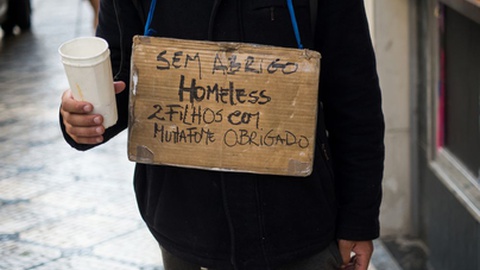 SEM ABRIGO
HOMELESS
2 FILHOS COM
MUITAFOME OBRIGADO